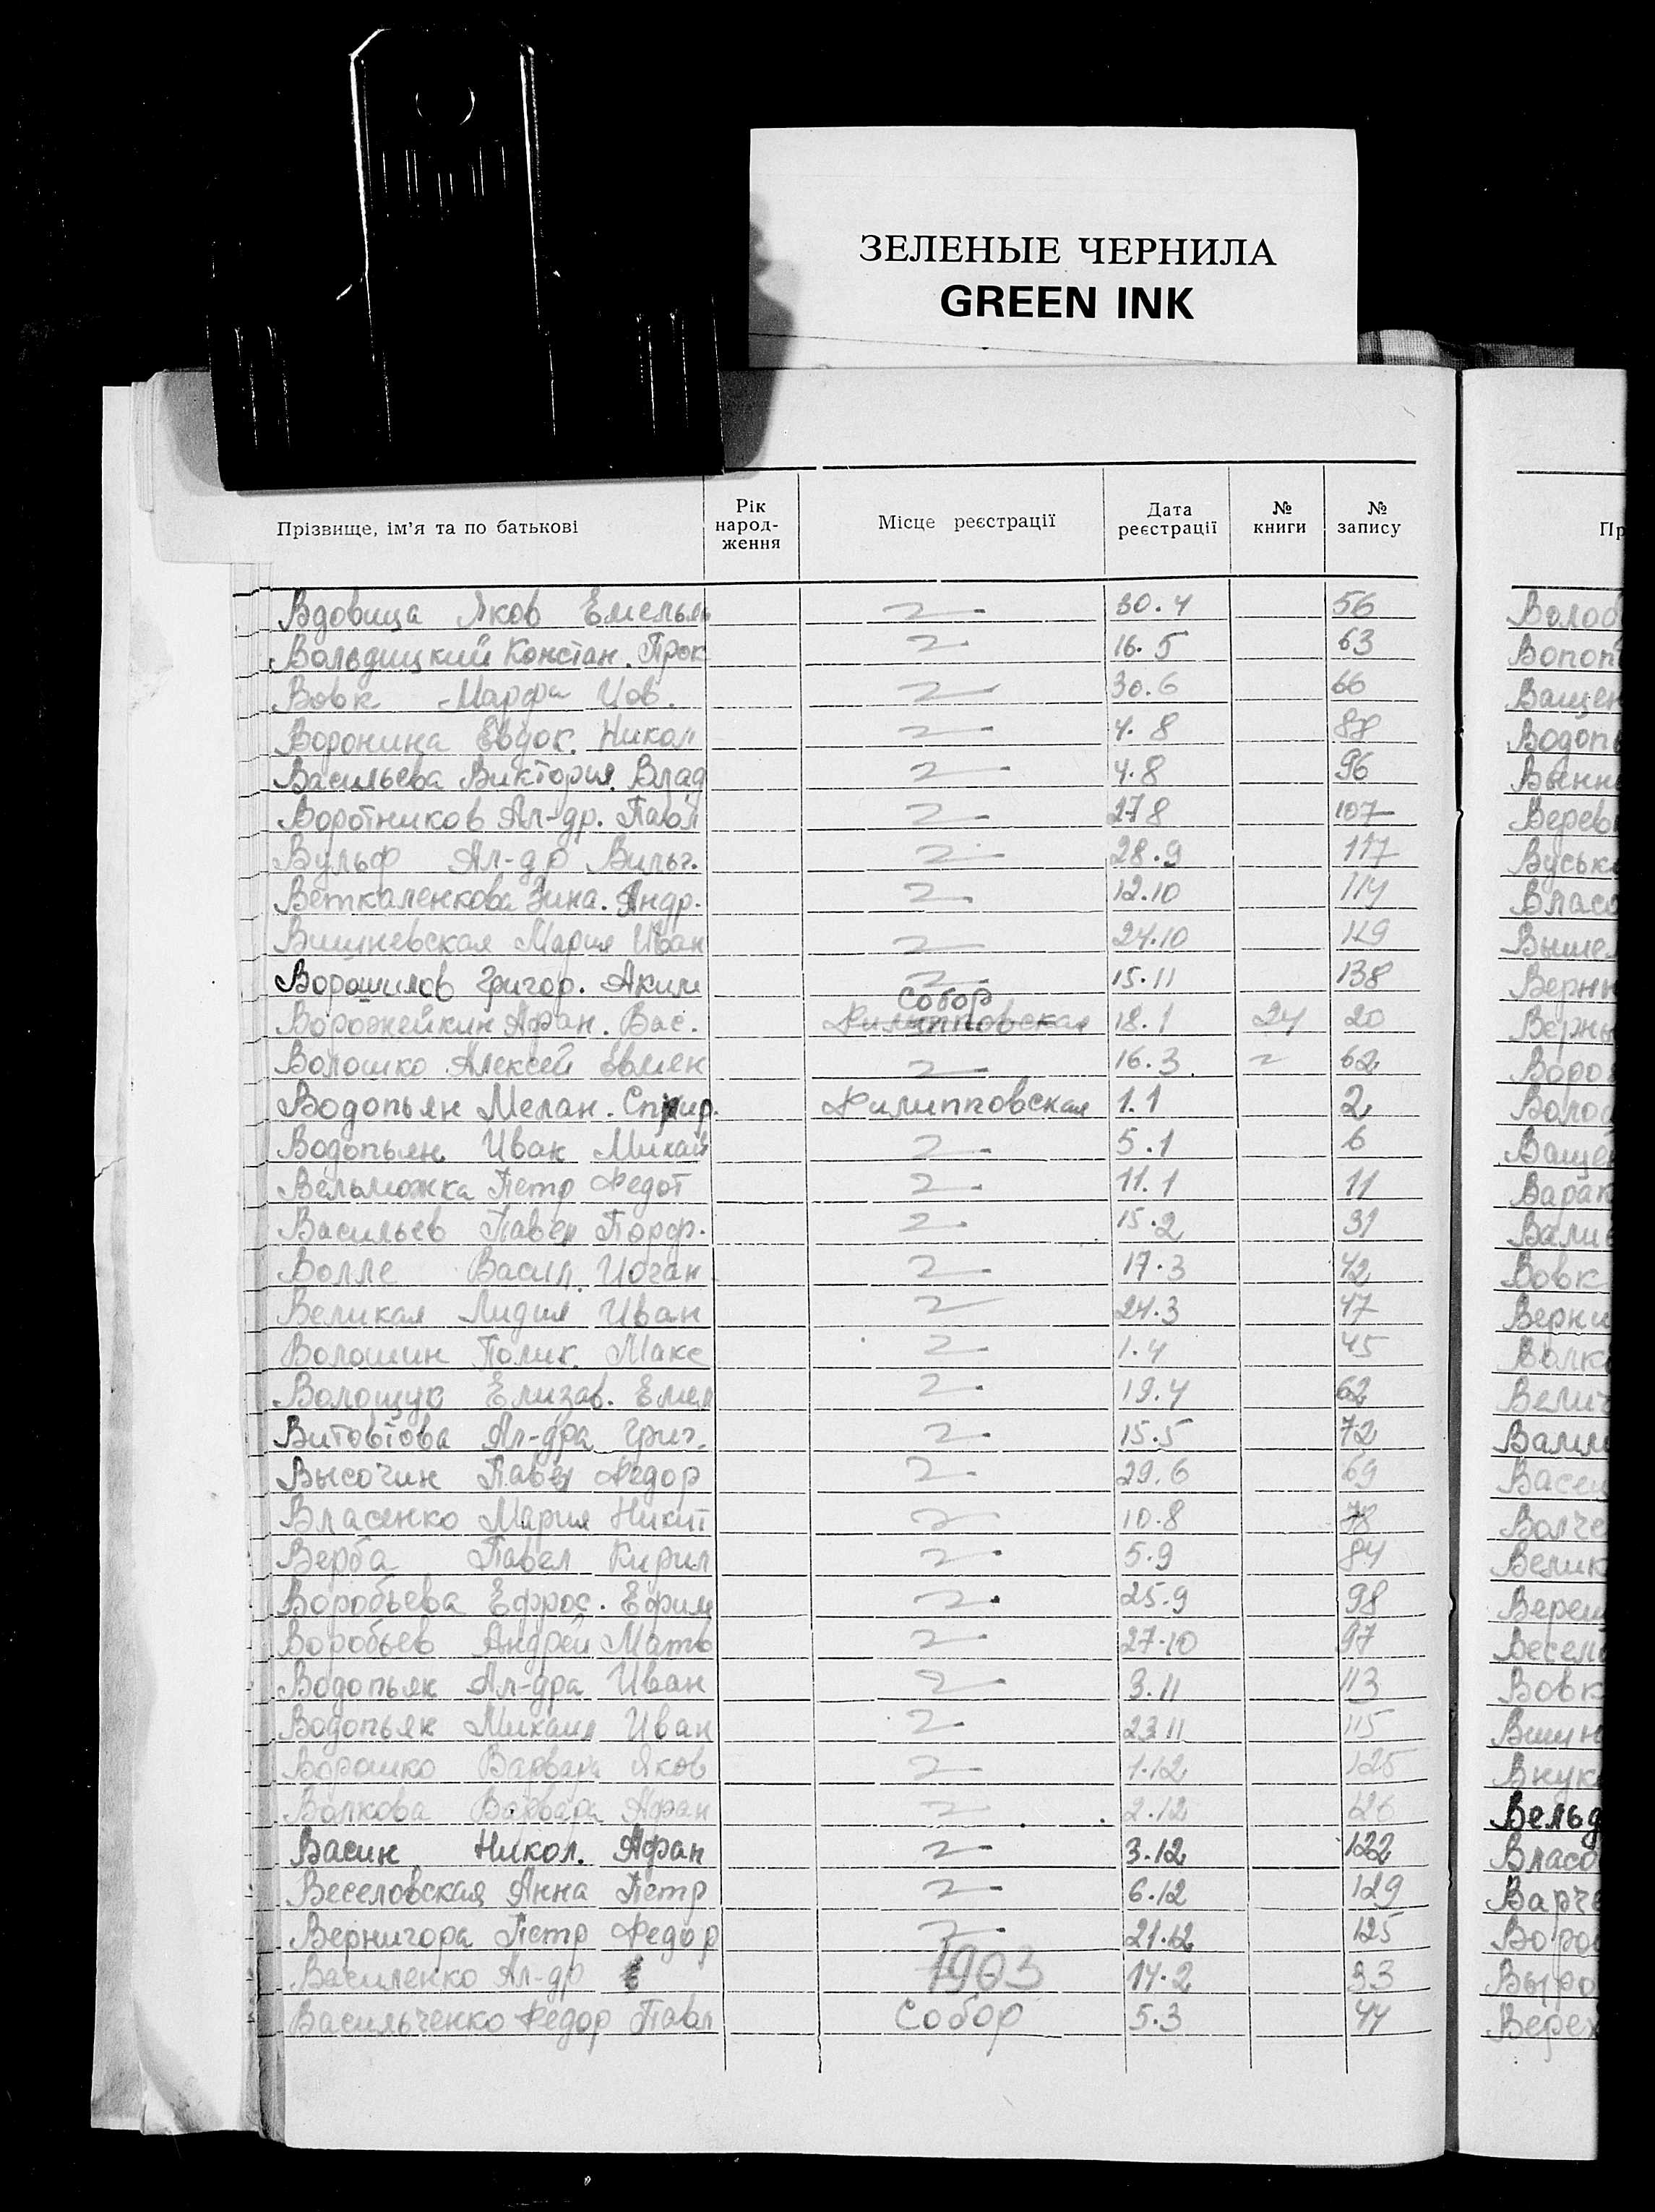 ЗЕЛЕНЫЕ ЧЕРНИЛА
GREEN INK
Прізвище, ім'я та по батькові Рік народ-ження Місце реєстрації Дата реєстрації № книги № запису Пр
Вдовица Яков Емельян 30.4 56 Волод
Вольдицкий Констан. Прок 16.5 63
Вовк Марфа Иов. 30.6 66 Ващен
Воронина Евдок. Никол 4.8 88 Водопь
Васильева Виктория Влад 4.8 96
Воротников Ал-др. Павл 27.8 107 Верев
Вульф Ал-др Вильг. 28.9 117 Вуськ
Веткаленкова Зина. Андр. 12.10 114 Власо
Вишневская Мария Иван 24.10 119 Вышел
Ворошилов Григор. Аким 15.11 138 Верни
Собор
Ворожейкин Афан. Вас. Филипповская 18.1 24 20 Верны
Волошко Алексей Евмен 16.3 62 Воро
Водопьян Мелан. Спир. Филипповская 1.1 2 Волод
Водопьян Иван Михай 5.1 6 Ваще
Вельможка Петр Федот 11.1 11 Вара
Васильев Павел Порф. 15.2 31
Волле Васил. Иоган 17.3 42 Вовк
Великая Лидия Иван 24.3 47 Верни
Волошин Полик. Макс 1.4 45 Волк
Волощук Елизав. Емел 19.4 62 Велич
Витовтова Ал-дра Григ. 15.5 72
Высочин Павел Федор 29.6 69
Власенко Мария Никит 10.8 78 Волче
Верба Павел Кирил 5.9 84 Велик
Воробьева Ефрос. Ефим 25.9 98 Вереш
Воробьев Андрей Матв 27.10 97 Весел
Водопьяк Ал-дра Иван 3.11 113 Вовк
Водопьяк Михаил Иван 23.11 115
Ворошко Варвара Яков 1.12 125 Внук
Волкова Варвара Афан 2.12 126 Вельд
Васин Никол. Афан 3.12 122 Власо
Веселовская Анна Петр 6.12 129 Варче
Вернигора Петр Федор 21.12 125 Воро
Василенко Ал-др 1903 14.2 33 Выро
Васильченко Федор Павл Собор 5.3 44 Верех